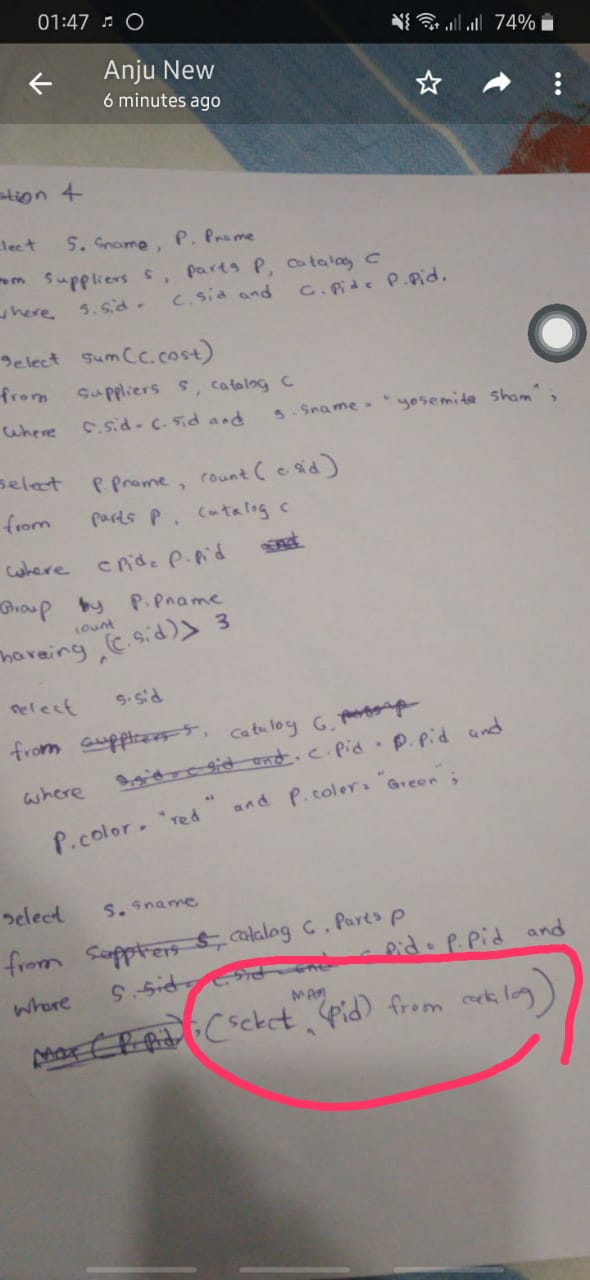 01:47
74%
Anju New
6 minutes ago
ation 4
lect S. Sname, P. Pname
om Suppliers s, parts P, catalog C
where s.sid = C.sid and C.pid = P.pid.
select sum(c.cost)
from suppliers s, catalog c
where s.sid = c.sid and s.sname = "yosemite sham";
select P.Pname, count(c.sid)
from parts P, catalog c
where c pid = P.pid and
Group by P.Pname
count
having (c.sid) > 3
select s.sid
from suppliers s, catalog C.
where s.sid = c.sid and. c.pid = P.pid and
P.color = "red" and P.color = "Green";
select s. sname
from Suppliers S, catalog C, Parts P
where s.sid = c.sid and c.pid = P.pid and
MAX
Max (P.pid); (select (pid) from catalog)